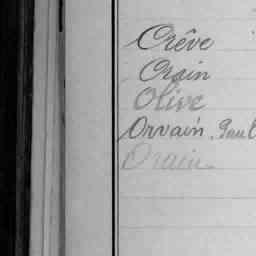 Crêve
Orain
Olive
Orvain, Paul
Drain